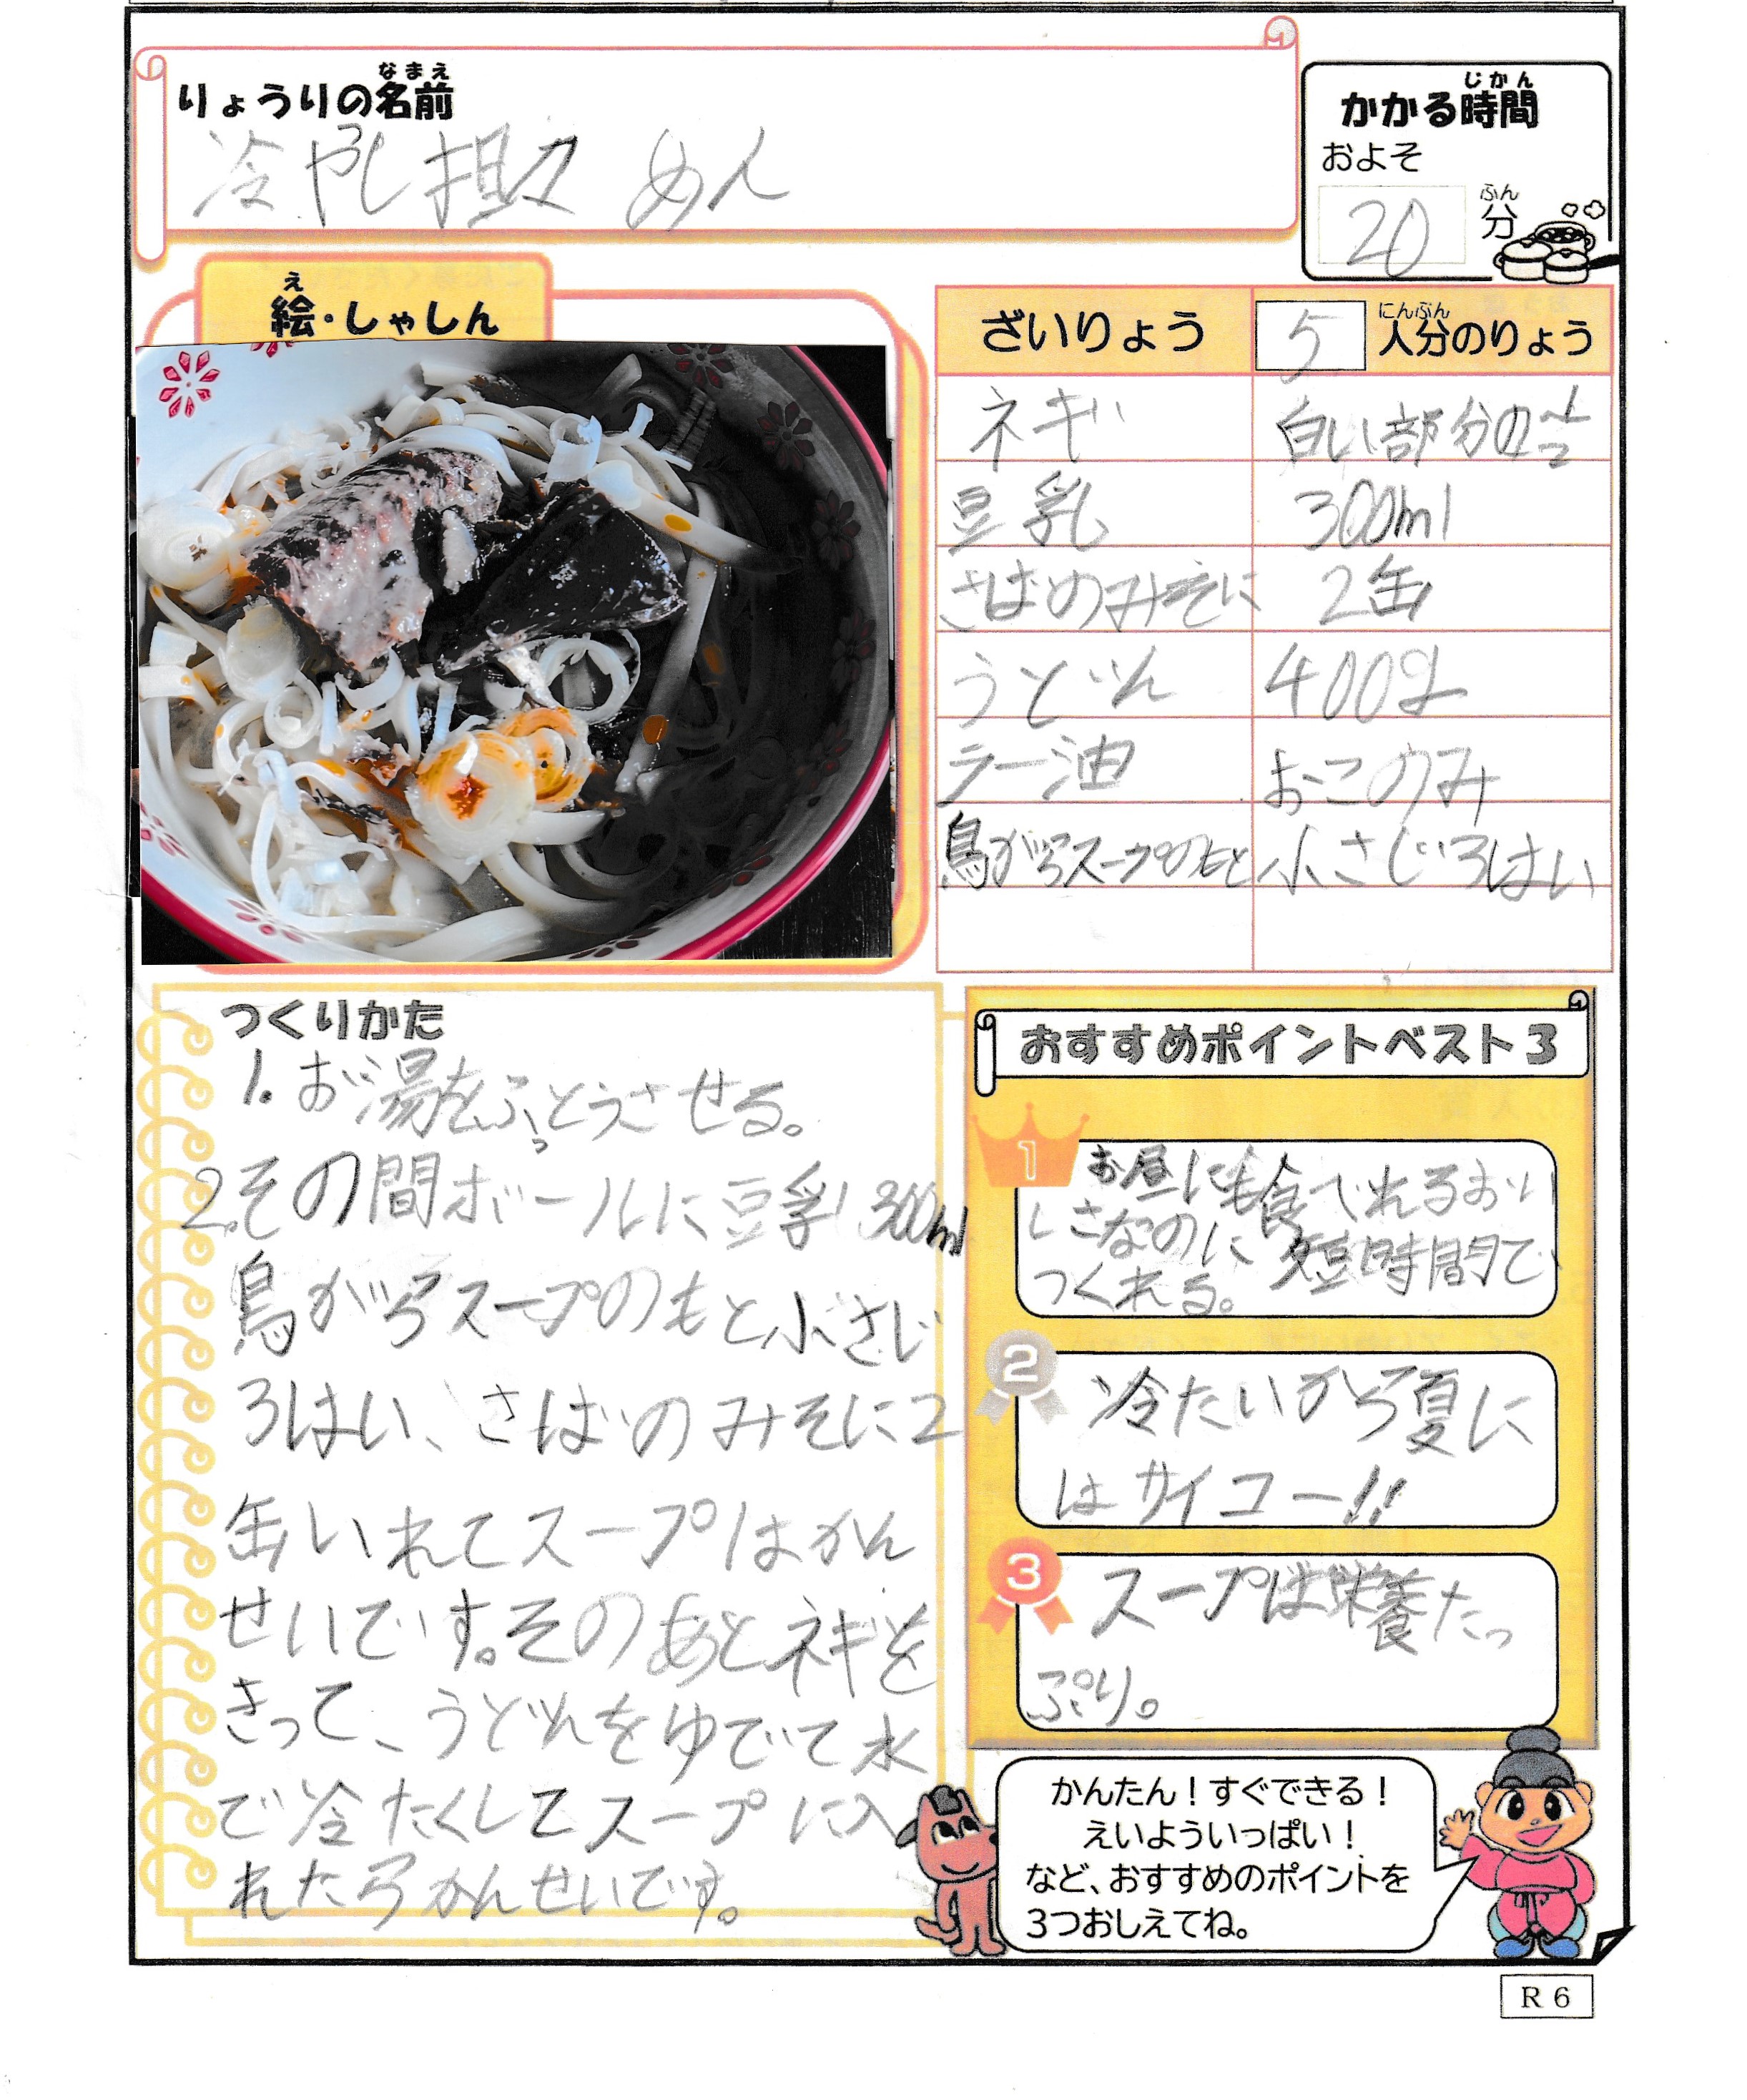 りょうりの名前
なまえ
冷やし担々めん
かかる時間
じかん
およそ
20
分
ふん
絵・しゃしん
え
ざいりょう 5 人分のりょう
にんぶん
ネギ 白い部分の1/2
豆乳 300ml
さばのみそに 2缶
うどん 400g
ラー油 おこのみ
鳥がらスープのもと 小さじ3ばい
つくりかた
1.お湯をふっとうさせる。
2.その間ボールに豆乳300ml
鳥がらスープのもと小さじ
3はい、さばのみそに2
缶いれてスープはかん
せいです。そのあとネギを
きって、うどんをゆでて水
で冷たくしてスープに入
れたらかんせいです。
おすすめポイントベスト3
1
お昼にも食べれるおい
しさなのに短時間で
つくれる。
2
冷たいから夏に
はサイコー!!
3
スープは栄養たっ
ぷり。
かんたん！すぐできる！
えいよういっぱい！
など、おすすめのポイントを
3つおしえてね。
R6